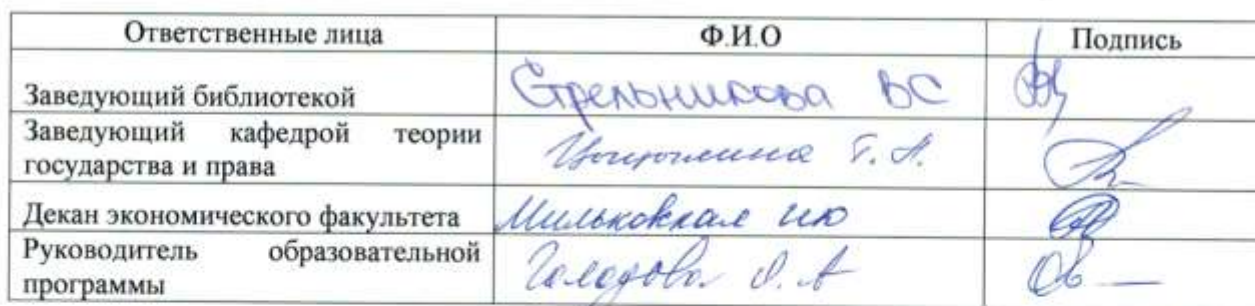 Ответственные лица Ф.И.О Подпись
Заведующий библиотекой Стрельникова ВС
Заведующий кафедрой теории
государства и права Т. А.
Декан экономического факультета Мильковская ию
Руководитель образовательной
программы А